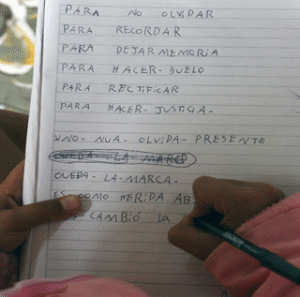 PARA NO OLVIDAR
PARA RECORDAR
PARA DEJAR MEMORIA
PARA HACER-DUELO
PARA RECTIFICAR
PARA HACER-JUSTICIA-
UNO- NUA- OLVIDA- PRESENTO
QUEDA LA MARCA
QUEDA-LA-MARCA-
ES COMO HERIDA AB
CAMBIÓ LA